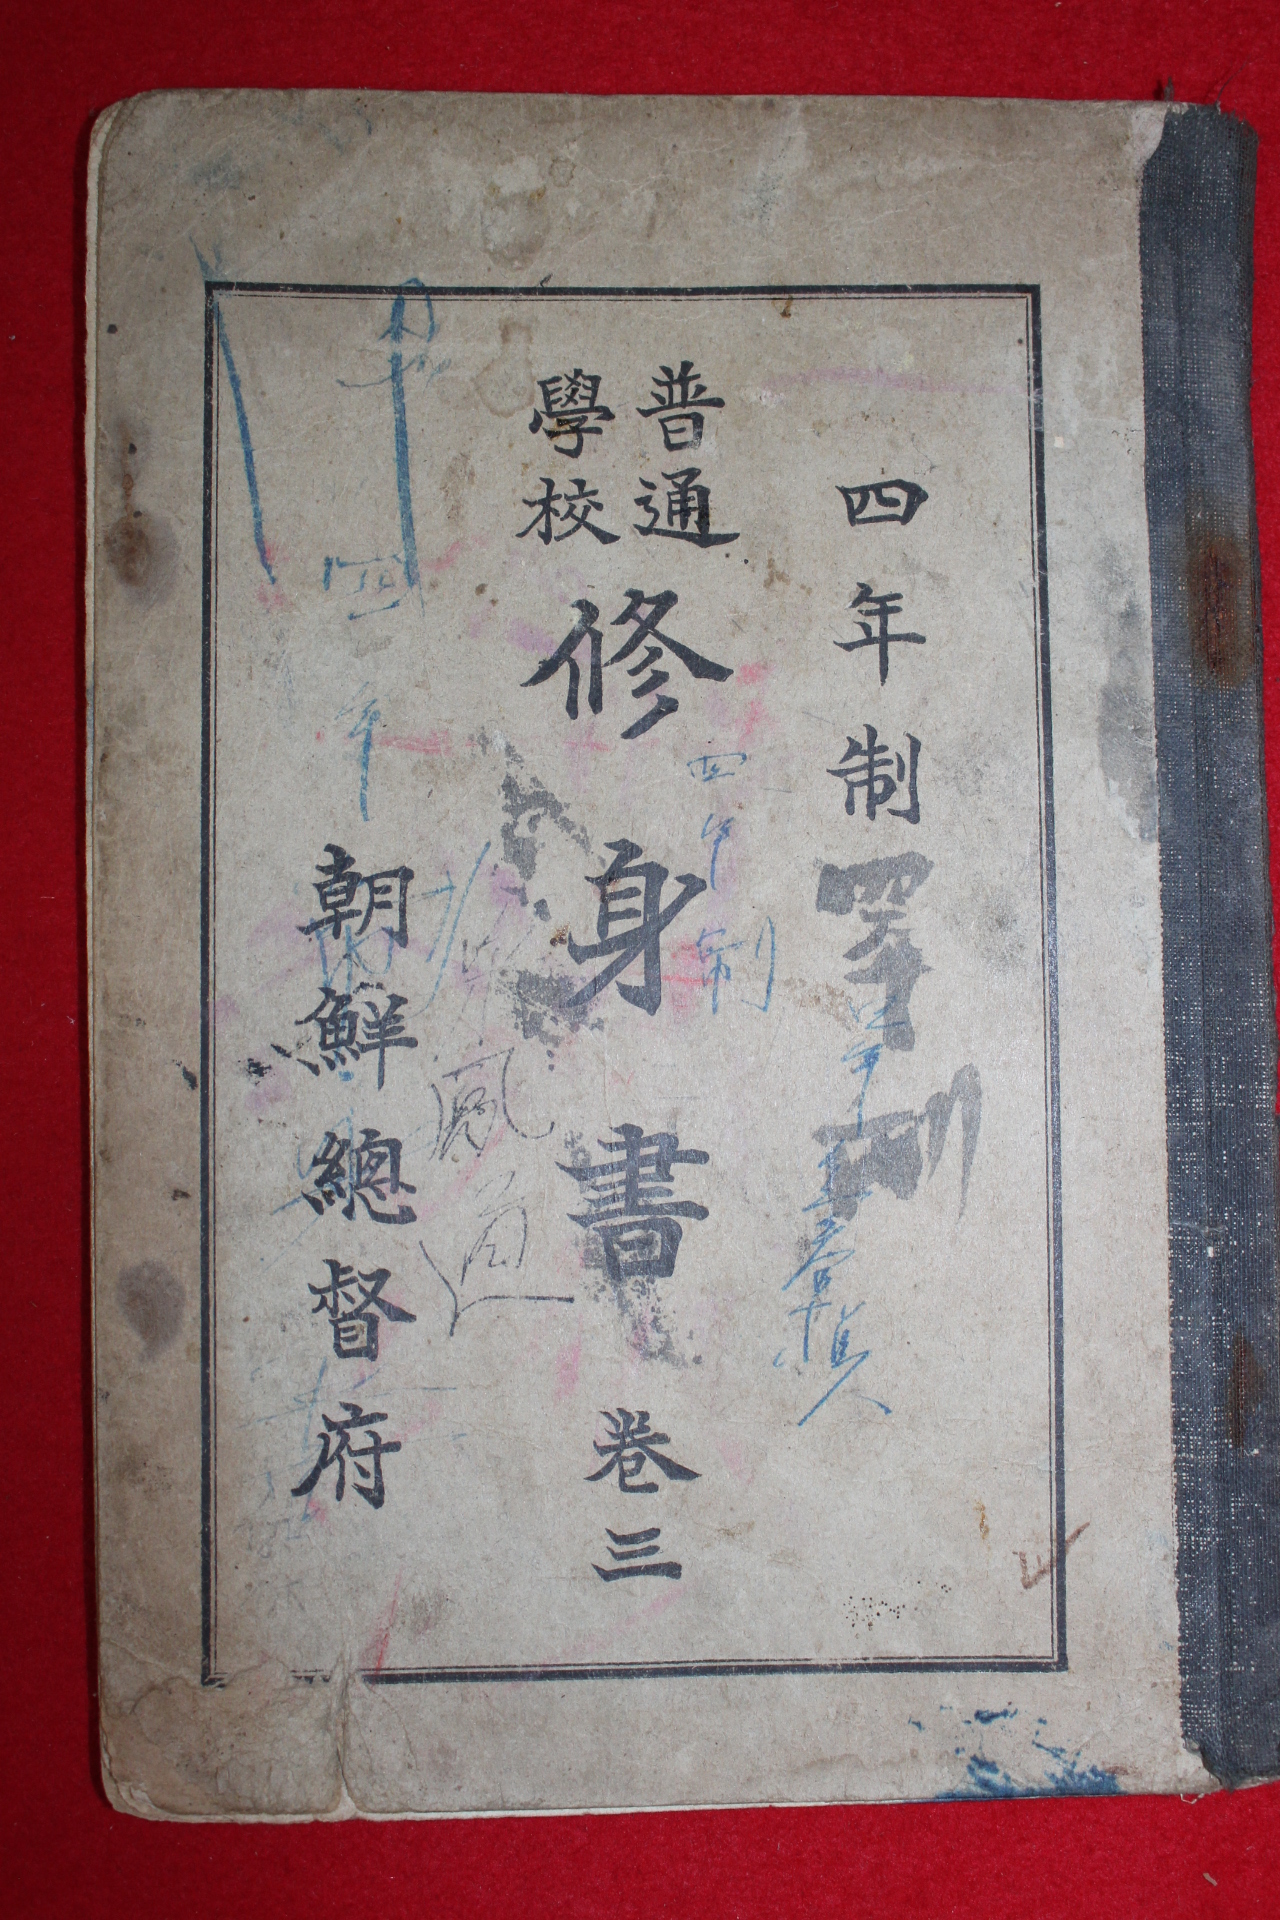 四年制
普通
學校
修身書 卷三
朝鮮總督府
四年制
四年